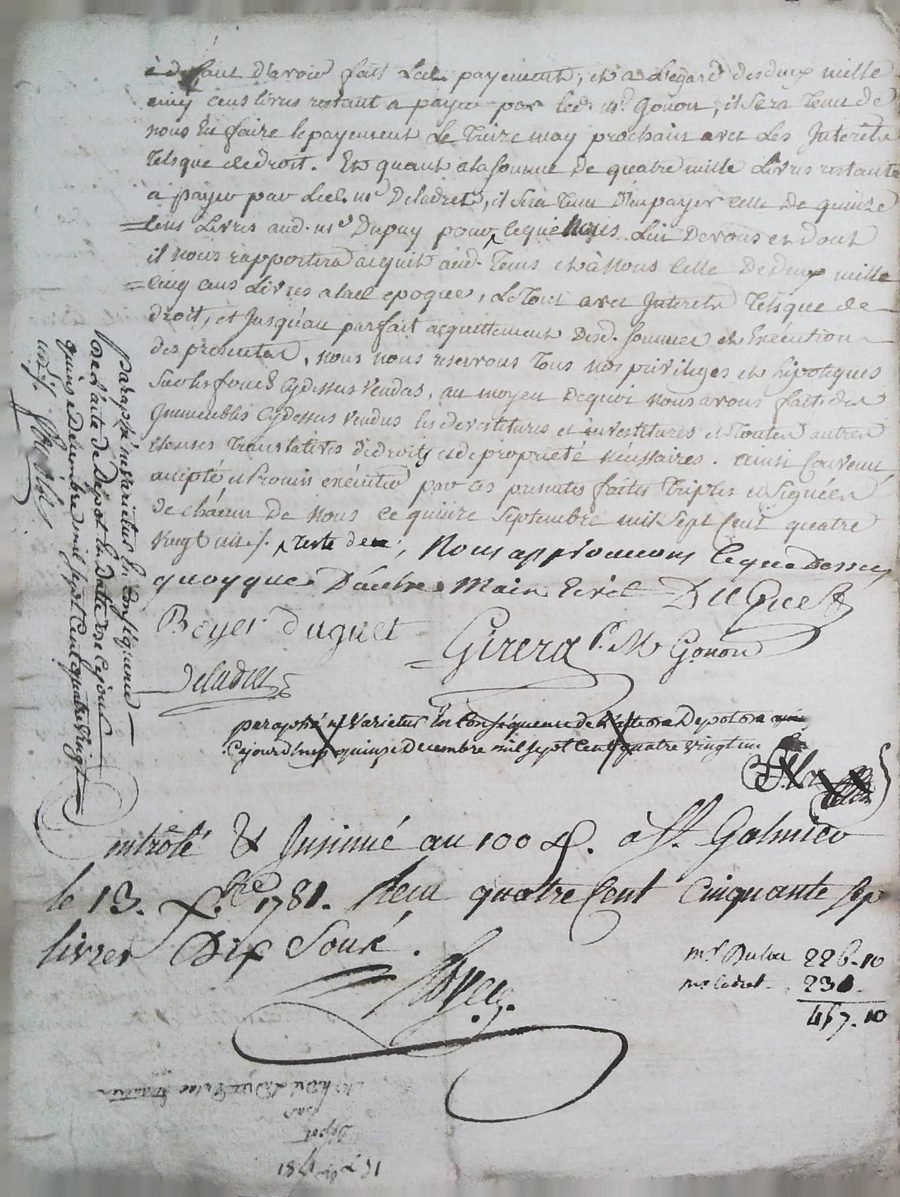 a deffaut d'avoir fait led. payement, et a l'egard des deux mille
cinq cens livres restant a payer par led. mr. Gonon, il sera tenu de
nous en faire le payement le treize may prochain avec les Interets
telsque de droit. Et quant a la somme de quatre mille livres restante
a payer par led. mr Deladret, il sera tenu d'en payer celle de quinze
=cens livres aud. mr Dupuy pour lequel nous lui devons et dont
il nous rapportera acquit aud. tems et à nous celle de deux mille
=cinq cens livres a lad. epoque, le tout avec Interets telsque de
droit, et jusqu'au parfait acquittement desd. sommes et exécution
des presentes, nous nous reservons tous nos privileges et hipoteques
sur les fonds cydessus vendus, au moyen de quoi nous avons fait des
Immeubles cydessus vendus les devestitures et investitures et toutes autres
clauses translatives de droits et de propriété necessaires. ainsi convenu
accepté et promis exécuter par ces presentes faites triples et signées
de chacun de nous ce quinze Septembre mil sept cent quatre
vingt un ; nous approuvons ce que dessus
quoyque d'autre main Ecrit Duguet
Boyer duguet Girerd Gonon
Deladret
paraphé ne varietur en conséquence de
cejourdhuy quinze Decembre mil sept cent quatre vingt un
paraphé ne varietur en conséquence
de l'acte de Dépot en datte de cejour
quinze Décembre mil sept cent quatre vingt
un
ontrôlé & Insinué au 100 d. a St. Galmier
le 13. Xbre 1781. Reçu quatre cent cinquante sep
livres Dix sous.
226-10
231
457.10
par
Dépot